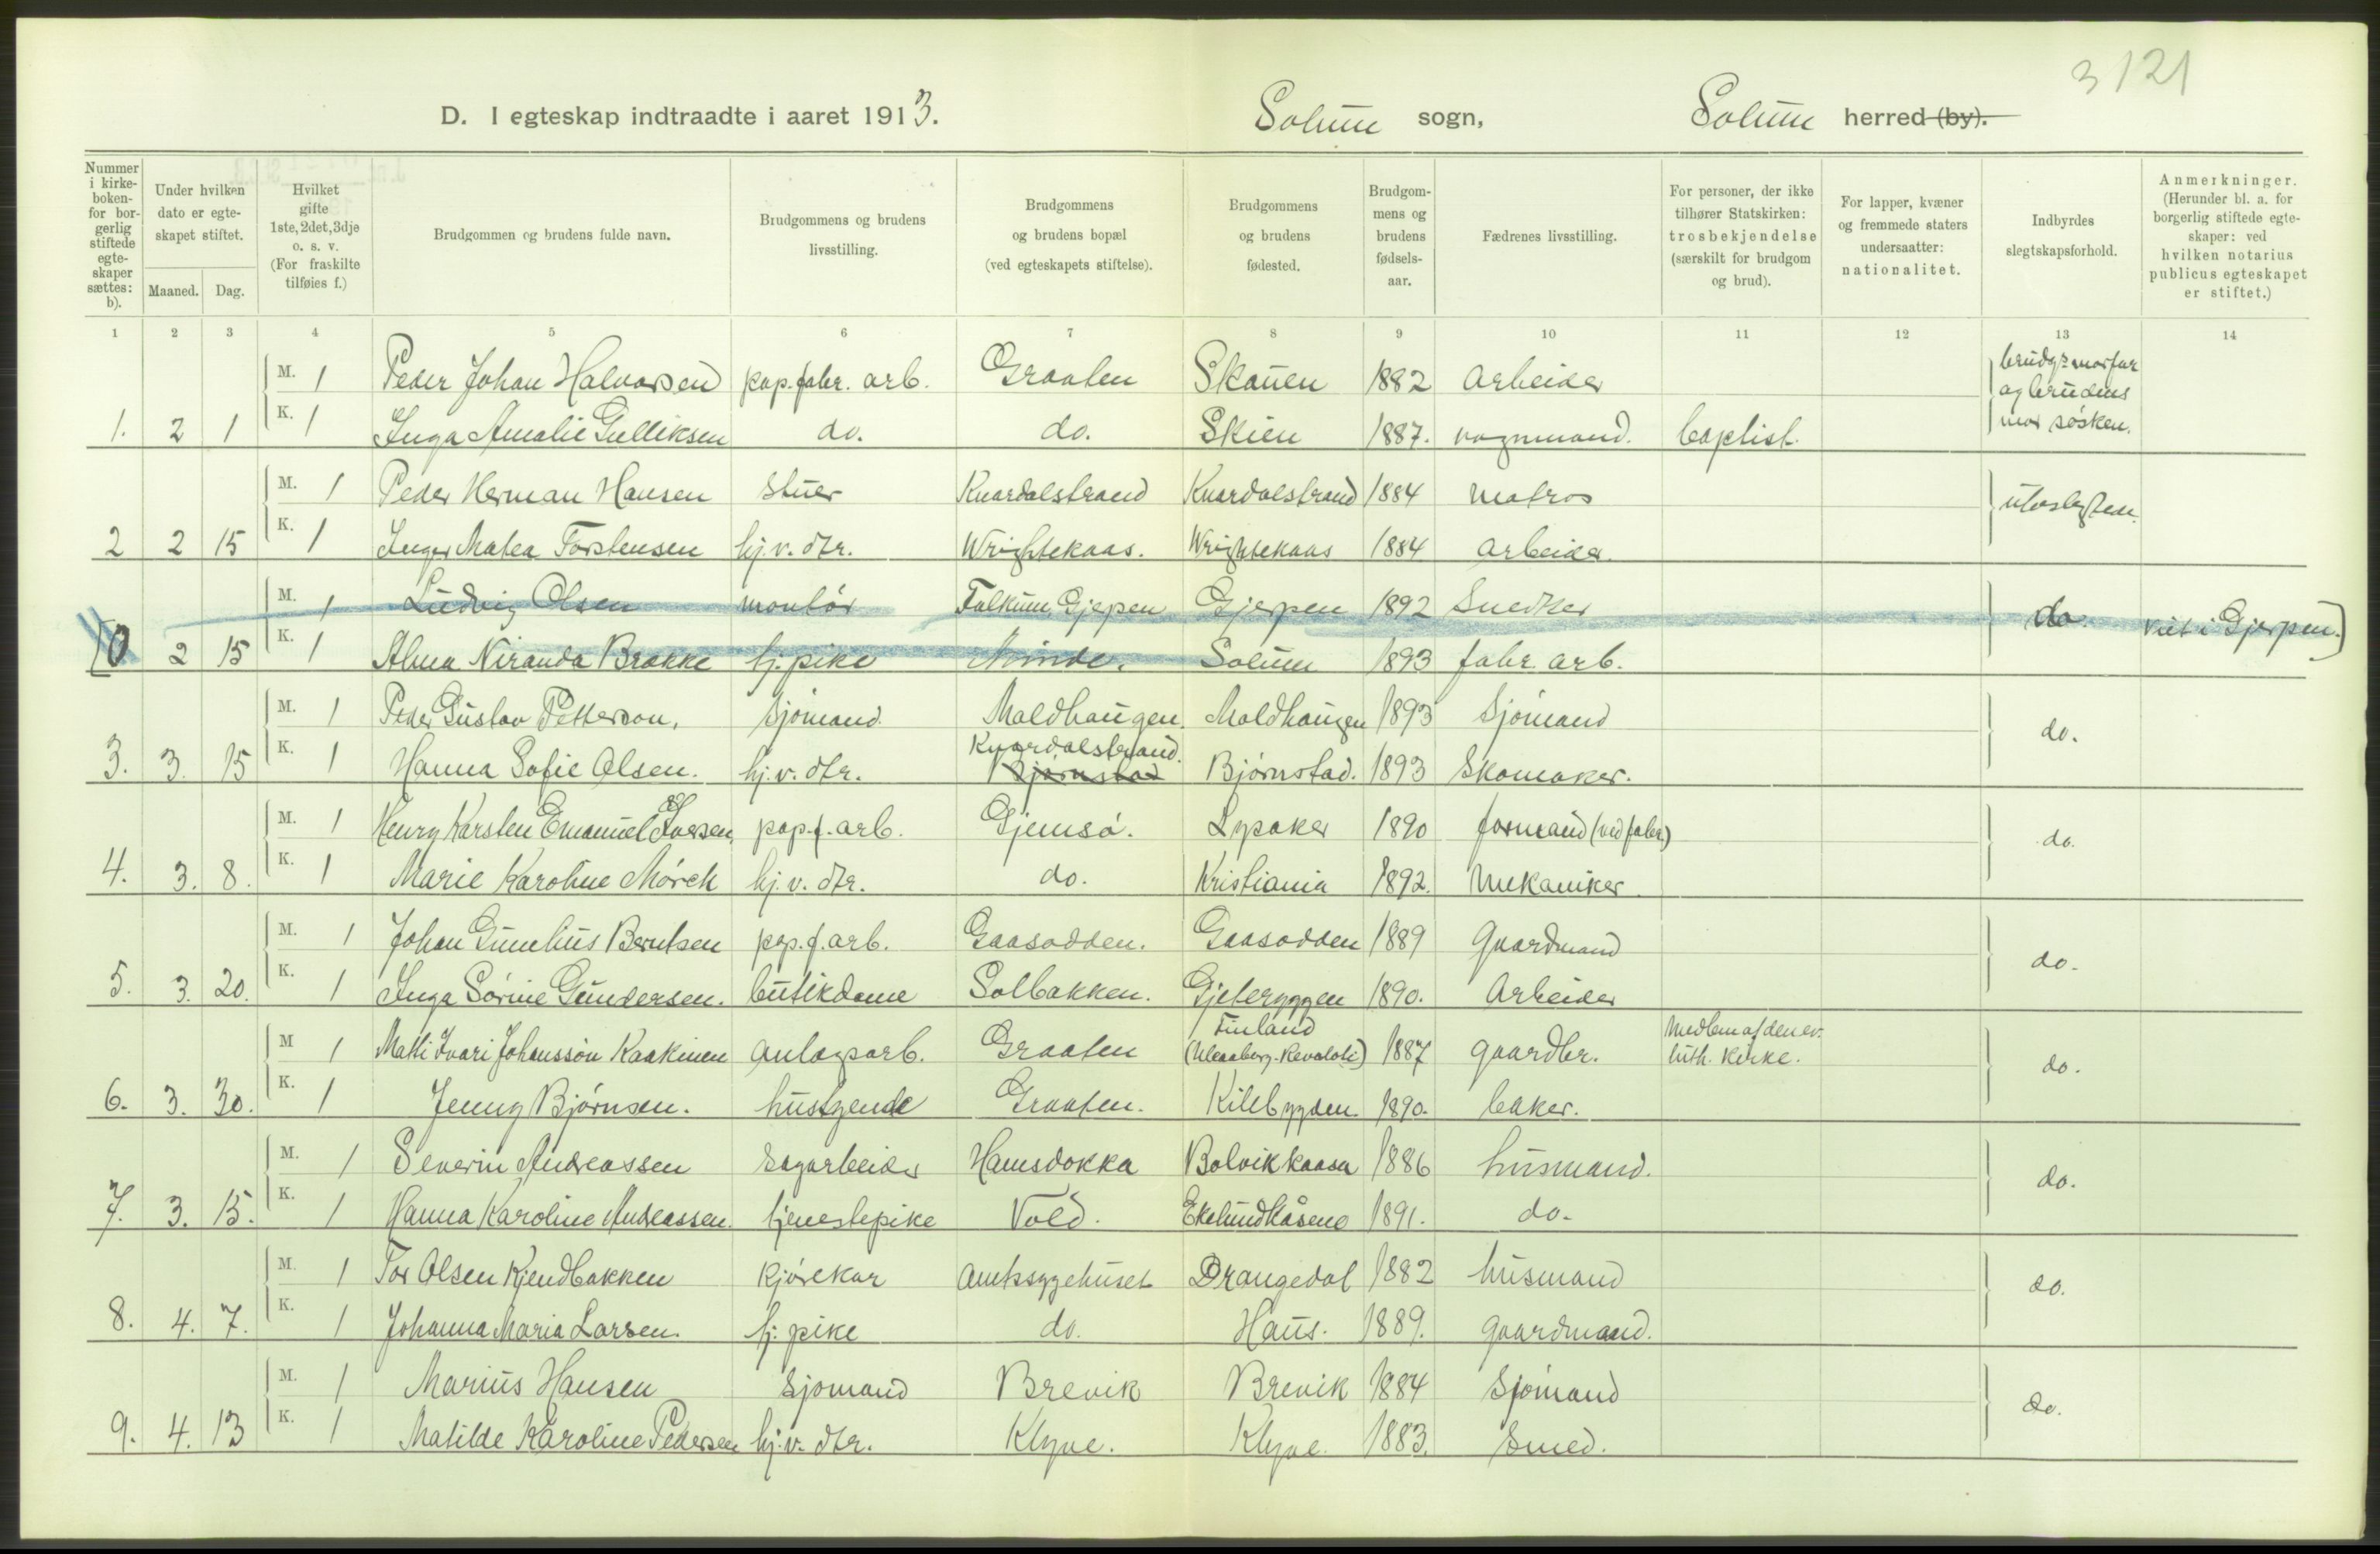 3121
D. I egteskap indtraadte i aaret 1913. Solum sogn, Solum herred (by).
Nummer i kirkeboken- for borgerlig stiftede egteskaper sættes: b).
Under hvilken dato er egteskapet stiftet.
Maaned. Dag.
Hvilket gifte 1ste, 2det, 3dje o. s. v. (For fraskilte tilføies f.)
Brudgommen og brudens fulde navn.
Brudgommens og brudens livsstilling.
Brudgommens og brudens bopæl (ved egteskapets stiftelse).
Brudgommens og brudens fødested.
Brudgommens og brudens fødselsaar.
Fædrenes livsstilling.
For personer, der ikke tilhører Statskirken: trosbekjendelse (særskilt for brudgom og brud).
For lapper, kvæner og fremmede staters undersaatter: nationalitet.
Indbyrdes slegtskapsforhold.
Anmerkninger. (Herunder bl. a. for borgerlig stiftede egteskaper: ved hvilken notarius publicus egteskapet er stiftet.)
1 2 3 4 5 6 7 8 9 10 11 12 13 14
M. 1 Peder Johan Halvorsen pap.fabr. arb. Graaten Skauen 1882 Arbeider brudg=morfar og brudens mor søsken.
1. 2 1 K. 1 Inga Amalie Gulliksen do. do. Skien 1887. vognmand. baptist.
M. 1 Peder Herman Hansen Stuer Knardalstrand Knardalstrand 1884 Matros utenslegten.
2 2 15 K. 1 Inger Matea Torstensen hj.v. dtr. Wrightekaas. Wrightekaas 1884 Arbeider.
M. 1 Ludvig Olsen montør Falkum, Gjepen Gjerpen 1892 Snedker do. Viet i Gjerpen.]
[0 2 15 K. 1 Alma Niranda Brakke tj. pike Minde. Solum 1893 fabr. arb.
M. 1 Peder Gustav Petterson, Sjømand Moldhaugen. Moldhaugen 1893 Sjømand do.
Knardalstrand.
3. 3. 15 K. 1 Hanna Sofie Olsen. hj.v. dtr. Bjørnstad Bjørnstad. 1893 Skomaker.
M. 1 Henry Karsten Emanuel Iversen, pap.f. arb. Gjemsø. Lypaker 1890 formand (ved fabr.) do.
4. 3. 8. K. 1 Marie Karoline Mørch hj. v. dtr. do. Kristiania 1892. Mekaniker
M. 1 Johan Gunelius Berntsen pap. f. arb. Gaasodden. Gaasodden 1889 Gaardmand do.
5. 3. 20. K. 1 Inga Sørine Gundersen. butikdame Solbakken. Gjeteryggen 1890. Arbeider
Finland Medlem af den ev.
M 1 Matti Ivari Johansson Kaakinen Anlægsarb. Graaten (Uleaborg. Revolati) 1887 gaardbr. luth. kirke. do.
6. 3. 30. K. 1 Jenny Bjørnsen. hustyende Graaten. Kilebygden. 1890. baker.
M. 1 Severin Andreassen Sagarbeider Hamsdokka Bolvikkaasa 1886 husmand. do.
7. 3. 15. K. 1 Hanna Karoline Andreassen. tjenestepike Vold. Ekelundkåsene 1891. do.
M. 1 Tor Olsen Kjendbakken kjørekar Amtssygehuset Drangedal 1882 husmand do.
8. 4. 7. K. 1 Johanna Maria Larsen. tj. pike do. Haus. 1889. gaardmand.
M. 1 Marius Hansen Sjømand Brevik Brevik 1884 Sjømand do.
9. 4. 13 K. 1 Matilde Karoline Pedersen hj.v. dtr. Klyve. Klyve. 1883. Smed.